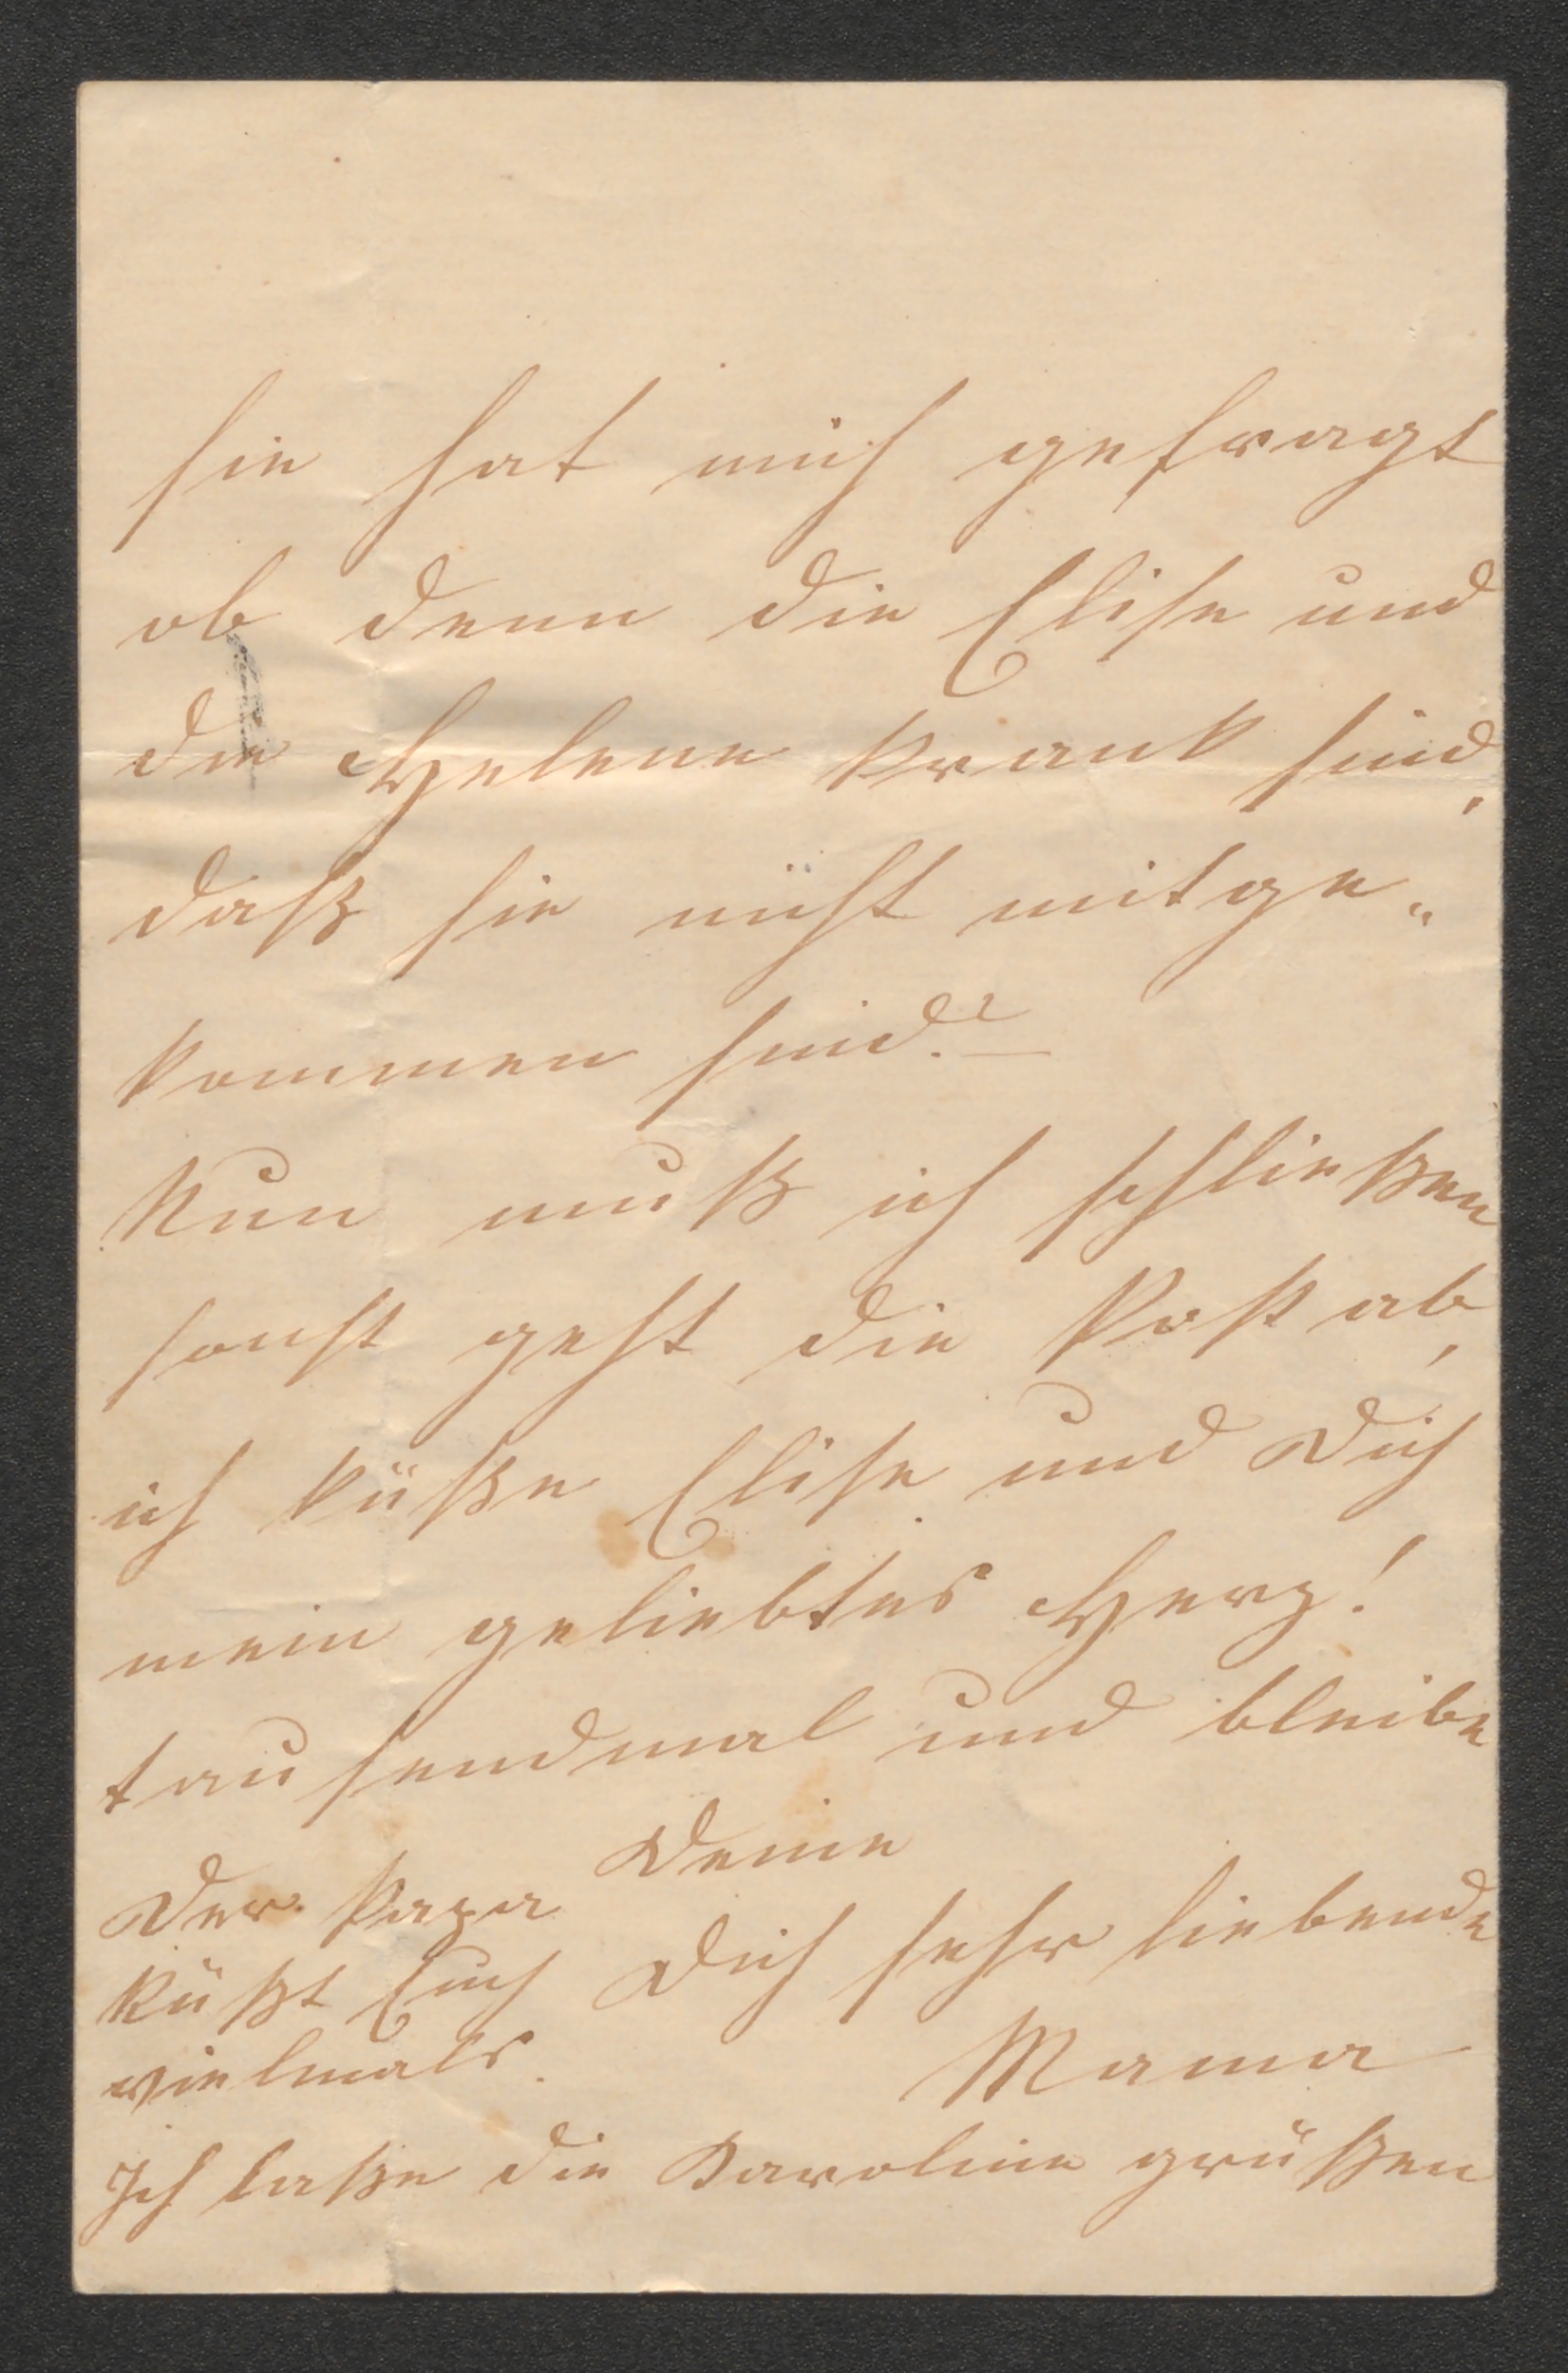 sie hat mich gefragt
ob denn die Elise und
die Helene krank sind,
daß sie nicht mitge„
kommen sind?—
Nun muß ich schließen
sonst geht die Post ab,
ich küße Elise und Dich
mein geliebtes Herz!
tausendmal und bleibe
Deine
Dich sehr liebende
Mama
Der Papa
küßt Euch
vielmals.
Ich laße die Karoline grüßen